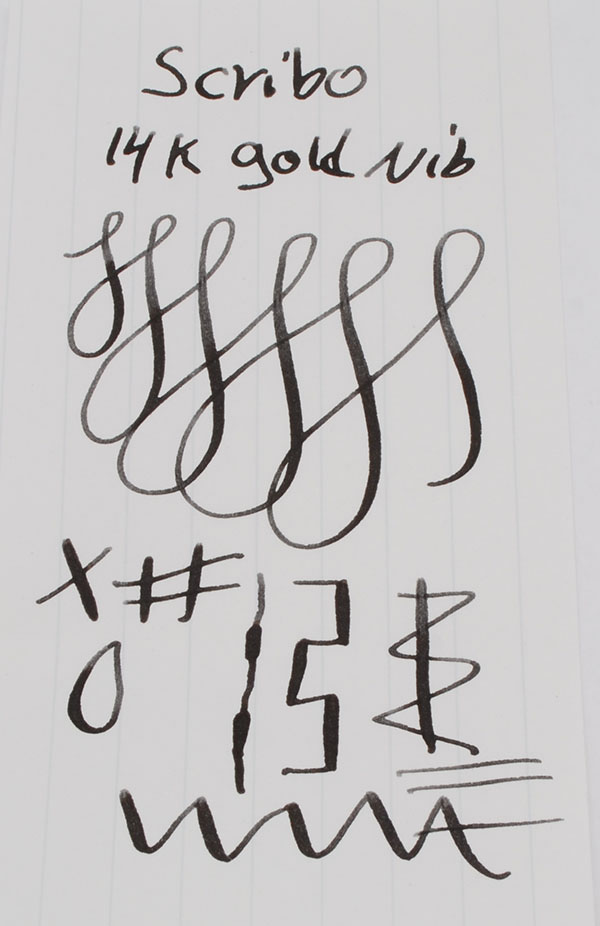 Scribo
14K gold Nib
X #